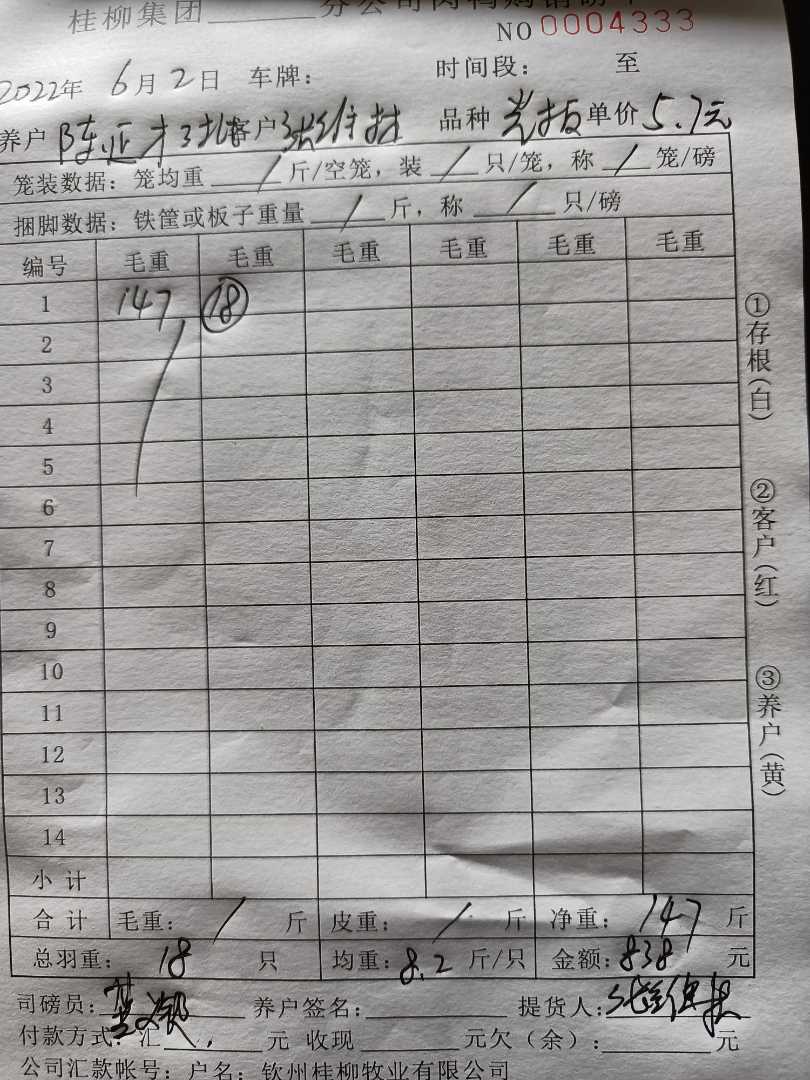 桂柳集团______分公司肉鸭购销磅单
NO 0004333
2022年 6月2日 车牌： 时间段： 至
养户 陈亚才3批 客户 张维 品种 光板 单价 5.7元
笼装数据：笼均重 / 斤/空笼，装 / 只/笼，称 / 笼/磅
捆脚数据：铁筐或板子重量 / 斤，称 / 只/磅
编号 毛重 毛重 毛重 毛重 毛重 毛重
1 147 18
2
3
4
5
6
7
8
9
10
11
12
13
14
小计
合计 毛重： / 斤 皮重： / 斤 净重： 147 斤
总羽重： 18 只 均重： 8.2 斤/只 金额： 838 元
司磅员： 养户签名： 提货人： 张维
付款方式：汇 元 收现 元欠（余）： 元
公司汇款帐号：户名：钦州桂柳牧业有限公司
①存根（白）
②客户（红）
③养户（黄）